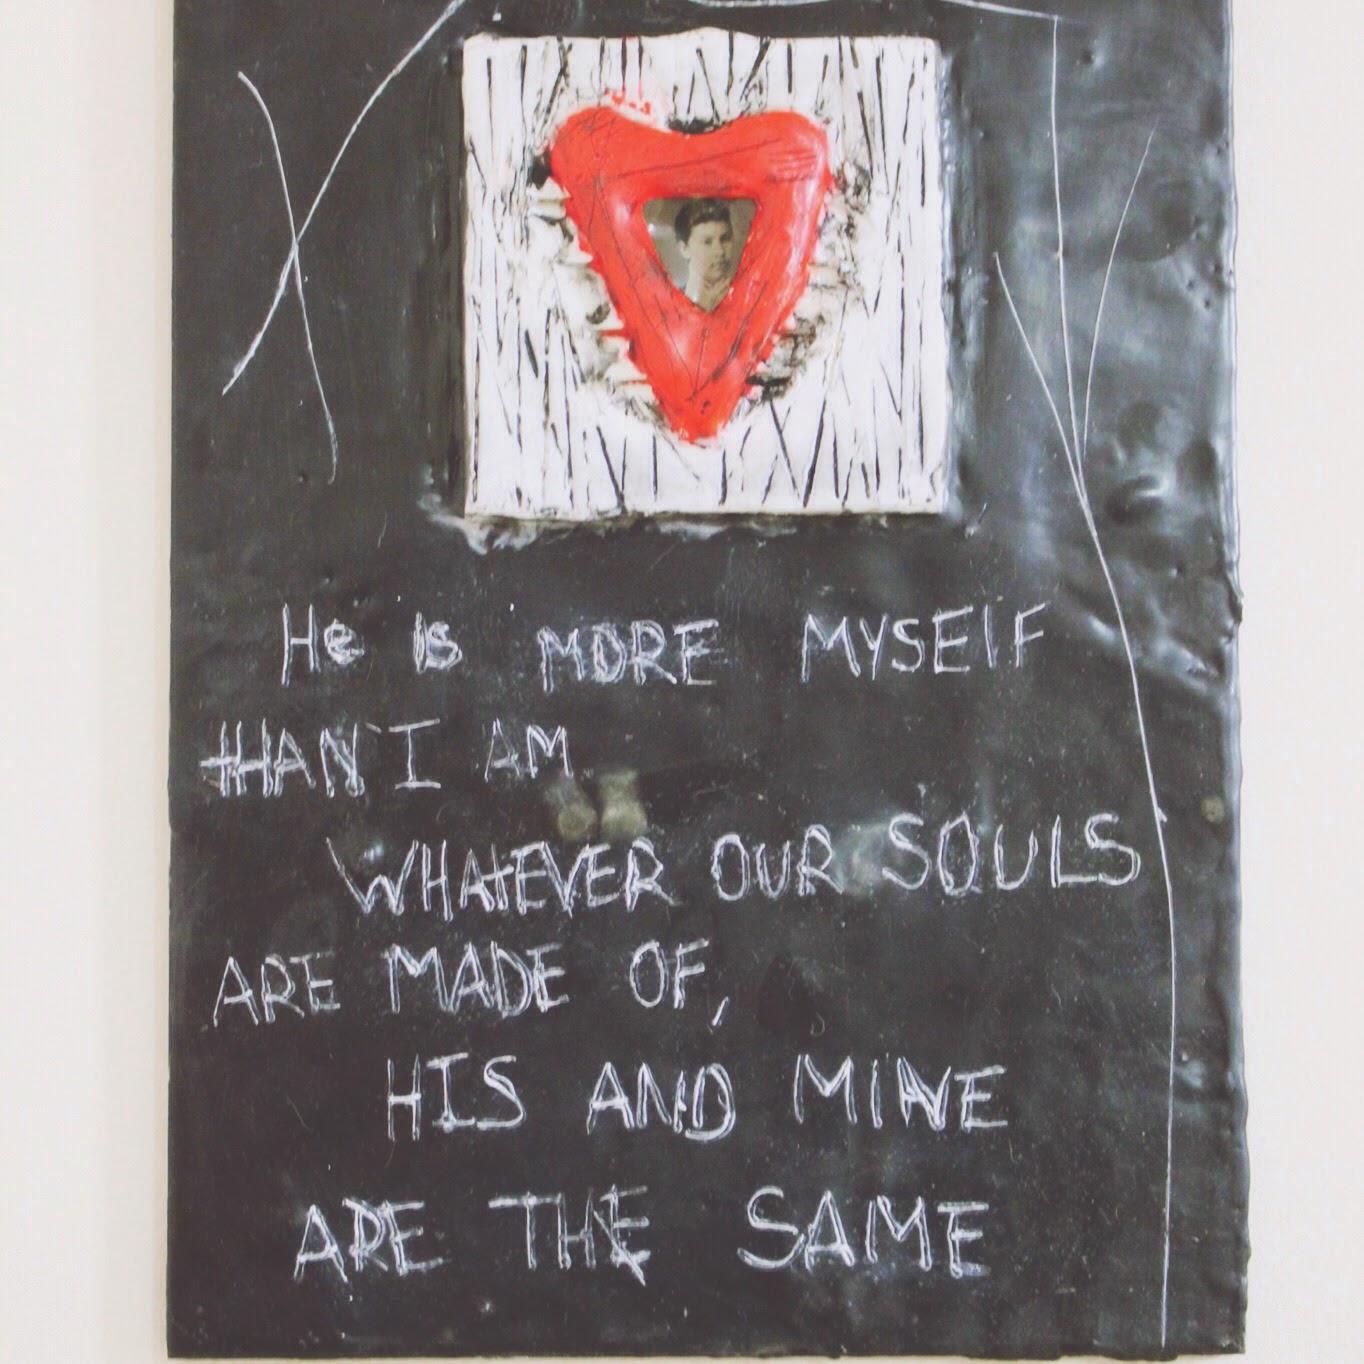 He is MORE MYSElF
tHAN I AM
WHATEVER OUR SOULS
ARE MADE OF,
HIS AND MINE
ARE THE SAME